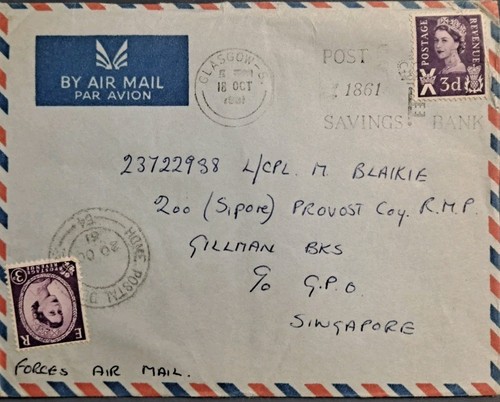 BY AIR MAIL
PAR AVION
GLASGOW
18 OCT
1961
POST
1861
SAVINGS BANK
POSTAGE REVENUE
3d
23722938 L/CPL. M. BLAIKIE
200 (S'PORE) PROVOST COY. R.M.P.
GILLMAN BKS
C/O G.P.O.
SINGAPORE
HOME POSTAL
20 OC
61
POSTAGE REVENUE
3D
E R
FORCES AIR MAIL.